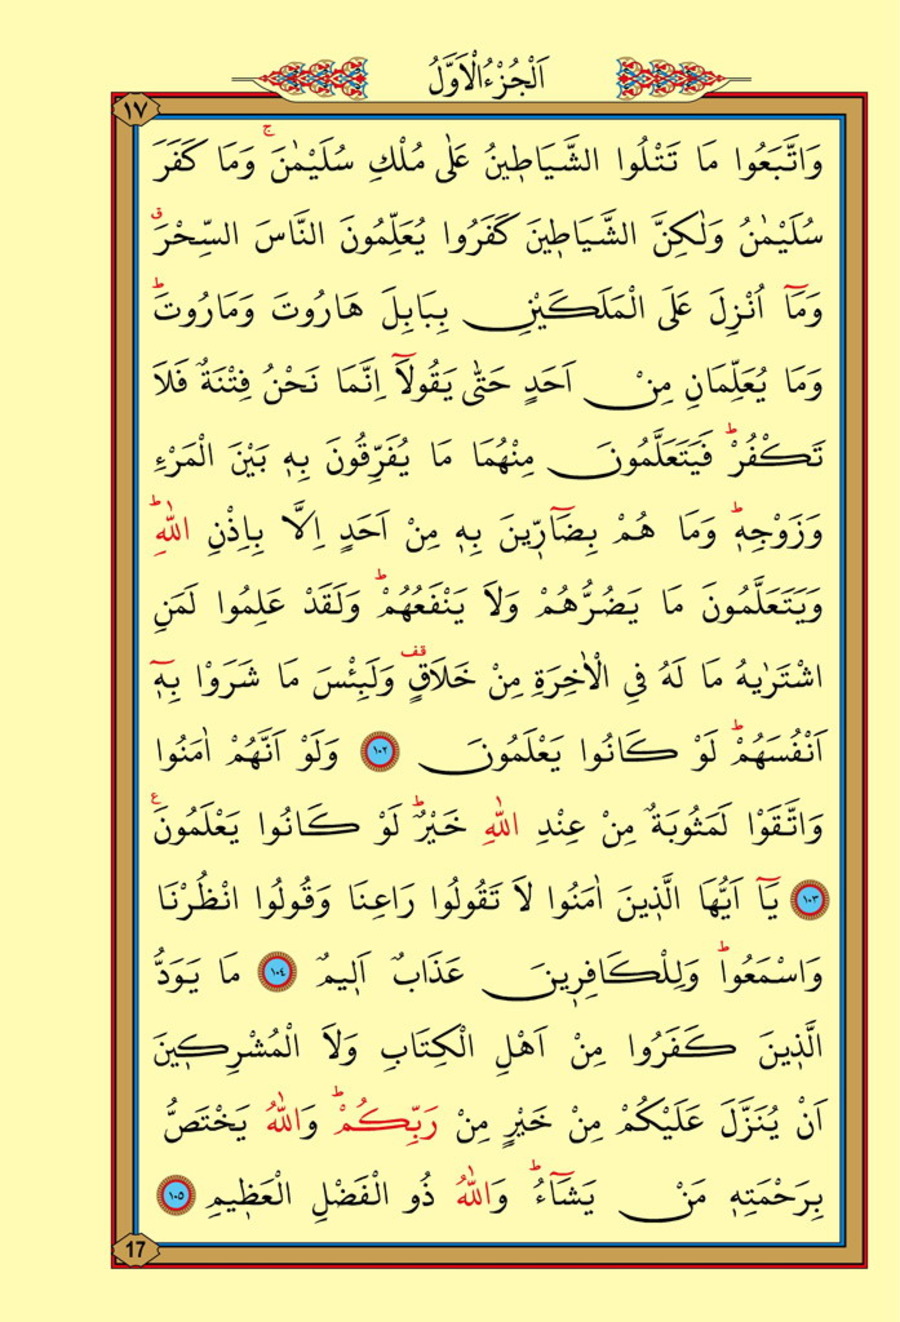 اَلْجُزْءُالْاَوَّلُ
١٧
وَاتَّبَعُوا مَا تَتْلُوا الشَّيَاطٖينُ عَلٰى مُلْكِ سُلَيْمٰنَۚ وَمَا كَفَرَ
سُلَيْمٰنُ وَلٰكِنَّ الشَّيَاطٖينَ كَفَرُوا يُعَلِّمُونَ النَّاسَ السِّحْرَࣗ
وَمَٓا اُنْزِلَ عَلَى الْمَلَكَيْنِ بِبَابِلَ هَارُوتَ وَمَارُوتَؕ
وَمَا يُعَلِّمَانِ مِنْ اَحَدٍ حَتّٰى يَقُولَٓا اِنَّمَا نَحْنُ فِتْنَةٌ فَلَا
تَكْفُرْؕ فَيَتَعَلَّمُونَ مِنْهُمَا مَا يُفَرِّقُونَ بِهٖ بَيْنَ الْمَرْءِ
وَزَوْجِهٖؕ وَمَا هُمْ بِضَٓارّٖينَ بِهٖ مِنْ اَحَدٍ اِلَّا بِاِذْنِ اللّٰهِؕ
وَيَتَعَلَّمُونَ مَا يَضُرُّهُمْ وَلَا يَنْفَعُهُمْؕ وَلَقَدْ عَلِمُوا لَمَنِ
اشْتَرٰيهُ مَا لَهُ فِي الْاٰخِرَةِ مِنْ خَلَاقٍࣞ وَلَبِئْسَ مَا شَرَوْا بِهٖٓ
اَنْفُسَهُمْؕ لَوْ كَانُوا يَعْلَمُونَ ١٠٢ وَلَوْ اَنَّهُمْ اٰمَنُوا
وَاتَّقَوْا لَمَثُوبَةٌ مِنْ عِنْدِ اللّٰهِ خَيْرٌؕ لَوْ كَانُوا يَعْلَمُونَࣖ
١٠٣ يَٓا اَيُّهَا الَّذٖينَ اٰمَنُوا لَا تَقُولُوا رَاعِنَا وَقُولُوا انْظُرْنَا
وَاسْمَعُواؕ وَلِلْكَافِرٖينَ عَذَابٌ اَلٖيمٌ ١٠٤ مَا يَوَدُّ
الَّذٖينَ كَفَرُوا مِنْ اَهْلِ الْكِتَابِ وَلَا الْمُشْرِكٖينَ
اَنْ يُنَزَّلَ عَلَيْكُمْ مِنْ خَيْرٍ مِنْ رَبِّكُمْؕ وَاللّٰهُ يَخْتَصُّ
بِرَحْمَتِهٖ مَنْ يَشَٓاءُؕ وَاللّٰهُ ذُو الْفَضْلِ الْعَظٖيمِ ١٠٥
17